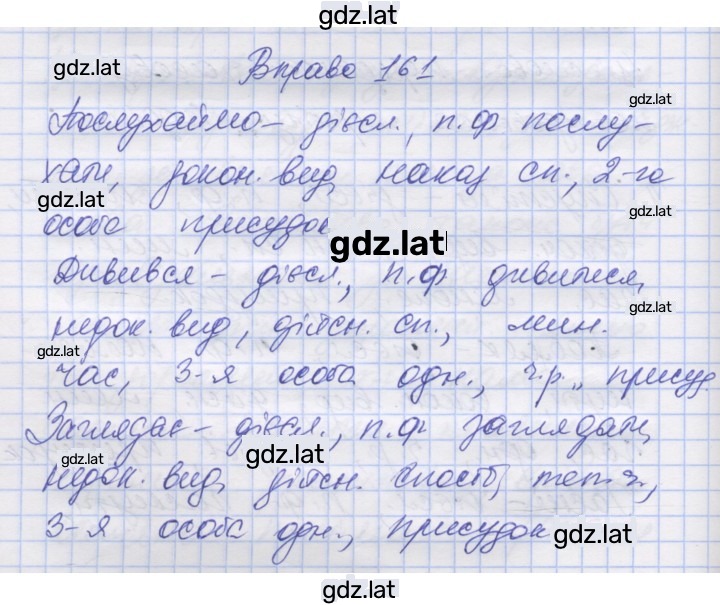 gdz.lat
gdz.lat Вправа 161
gdz.lat
Послухаймо – дієсл., п.ф послу-
хати, докон. вид, наказ сп., 2-га
gdz.lat gdz.lat
особа присудок
gdz.lat
Дивився – дієсл., п.ф дивитися,
gdz.lat
недок. вид, дійсн. сп., мин.
gdz.lat
час, 3-я особа одн., ч.р., присуд.
Заглядає – дієсл., п.ф заглядати,
gdz.lat gdz.lat
недок. вид, дійсн. спосіб, теп. ч.,
3-я особа одн., присудок
gdz.lat
gdz.lat